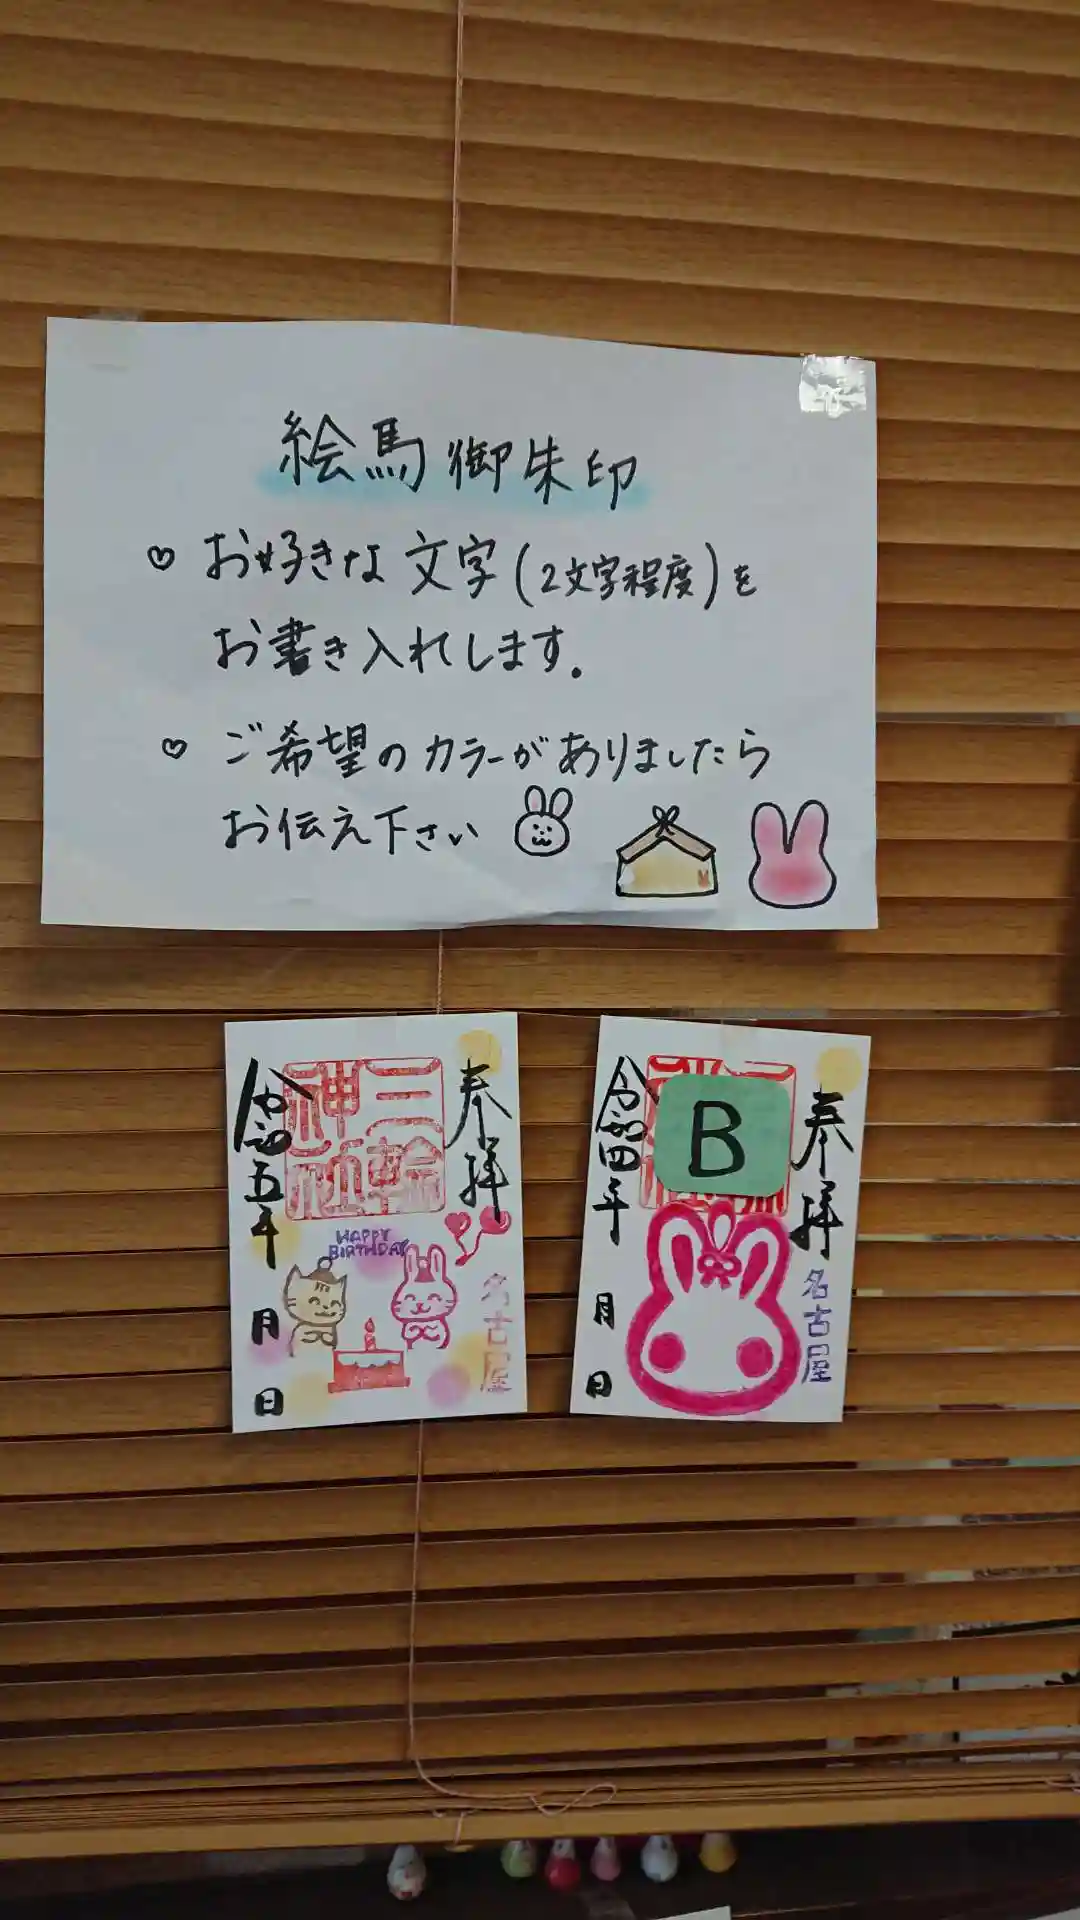 絵馬御朱印
♡ お好きな文字(2文字程度)を
お書き入れします.
♡ ご希望のカラーがありましたら
お伝え下さい
奉拝
三輪
神社
令和五年
月
日
HAPPY
BIRTHDAY
名古屋
奉拝
B
令和四年
月
日
名古屋